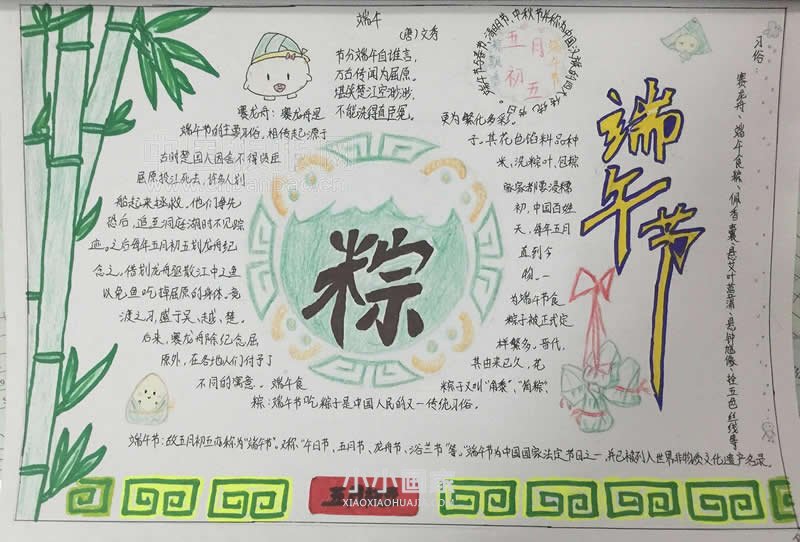 端午
(唐)文秀
节分端午自谁言,
万古传闻为屈原。
堪笑楚江空渺渺,
不能洗得直臣冤。
端午节与春节、清明节、中秋节并称为中国汉族的四大传统节日。
五月
初五
端午节
习俗:
赛龙舟、端午食粽、佩香囊、悬艾叶菖蒲、悬钟馗像、拴五色丝线等
赛龙舟:赛龙舟是
端午节的主要习俗,相传起源于
古时楚国人因舍不得贤臣
屈原投江死去,许多人划
船起来拯救。他们争先
恐后,追至洞庭湖时不见踪
迹。之后每年五月初五划龙舟纪
念之。借划龙舟驱散江中之鱼
以免鱼吃掉屈原的身体。竞
渡之习,盛于吴、越、楚。
后来,赛龙舟除纪念屈
原外,在各地人们付予了
不同的寓意。端午食
粽:端午节吃粽子是中国人民的又一传统习俗。
粽子又叫“角黍”、“筒粽”
其由来已久,花
样繁多。晋代,
粽子被正式定
为端午节食
物。一
直到今
天,每年五月
初,中国百姓
家家都要浸糯
米、洗粽叶、包粽
子,其花色馅料品种
更为繁化多彩。
粽
端午节
端午节:故五月初五亦称为“端午节”。又称“午日节、五月节、龙舟节、浴兰节”等。“端午节为中国国家法定节日之一,并已被列入世界非物质文化遗产名录。
小小画家
XIAOXIAOHUAJIA.COM